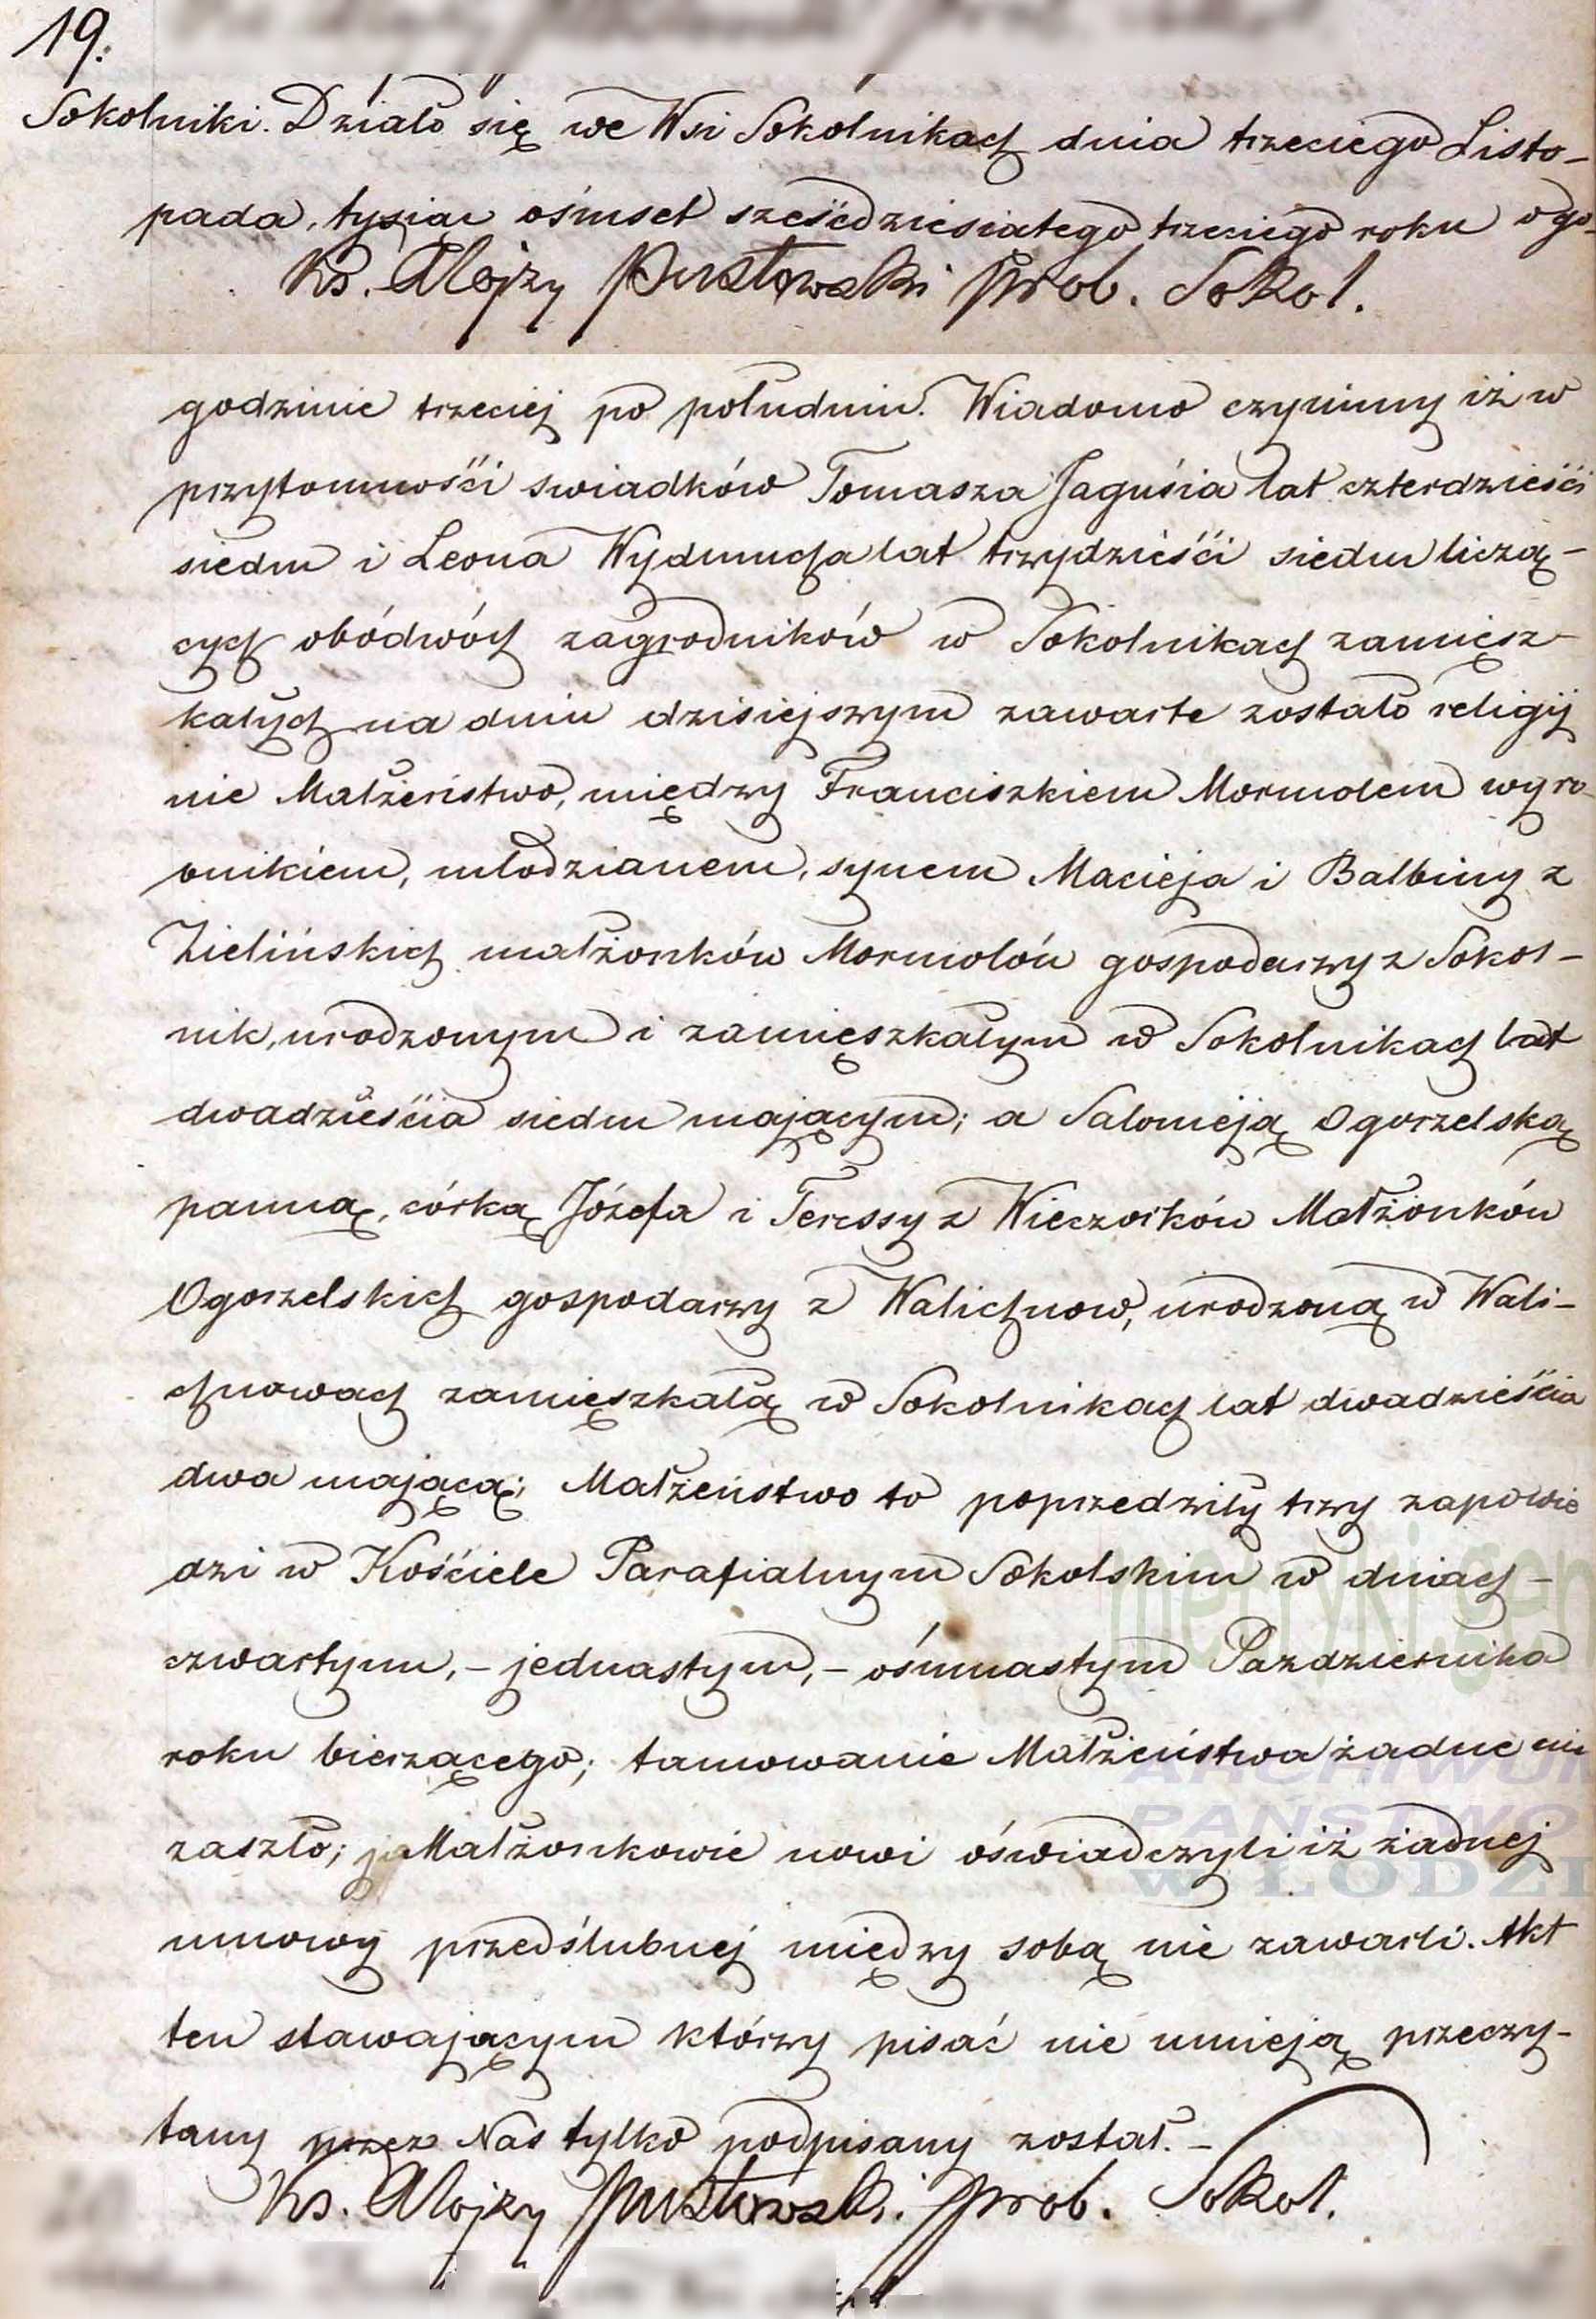 19.
Sokolniki. Działo się we Wsi Sokolnikach dnia trzeciego Listo-
pada, tysiąc ośmset sześćdziesiątego trzeciego roku o go-
Ks. Alojzy Pustowski Prob. Sokol.
godzinie trzeciej po południu. Wiadomo czynimy iż w
przytomności swiadków Tomasza Jagusia lat czterdzieści
siedm i Leona Wydmucha lat trzydzieści siedm liczą-
cych obódwóch zagrodników w Sokolnikach zamięsz-
kałych na dniu dzisiejszym zawarte zostało religij
nie Małżeństwo, między Franciszkiem Mormolem wyro-
bnikiem, młodzianem, synem Macieja i Balbiny z
Zielińskich małżonków Mormolów gospodarzy z Sokol-
nik, urodzonym i zamięszkałym w Sokolnikach lat
dwadzieścia siedm mającym; a Salomeją Ogorzelską
panną, córką Józefa i Teressy z Wieczorków Małżonków
Ogorzelskich gospodarzy z Walichnow, urodzoną w Wali-
chnowach zamięszkałą w Sokolnikach lat dwadzieścia
dwa mającą; Małżeństwo to poprzedziły trzy zapowie
dzi w Kościele Parafialnym Sokolskim w dniach -
czwartym, - jednastym, - ośmnastym Pazdziernika
roku bierzącego; tamowanie Małżeństwa żadne nie
zaszło; Małżonkowie nowi oświadczyli iż żadnej
umowy przedślubnej między sobą nie zawarli. Akt
ten stawającym którzy pisać nie umieją przeczy-
tany przez Nas tylko podpisany został. -
Ks. Alojzy Pustowski. Prob. Sokol.
metryki.gen
ARCHIWUM
PAŃSTWO
W ŁODZI